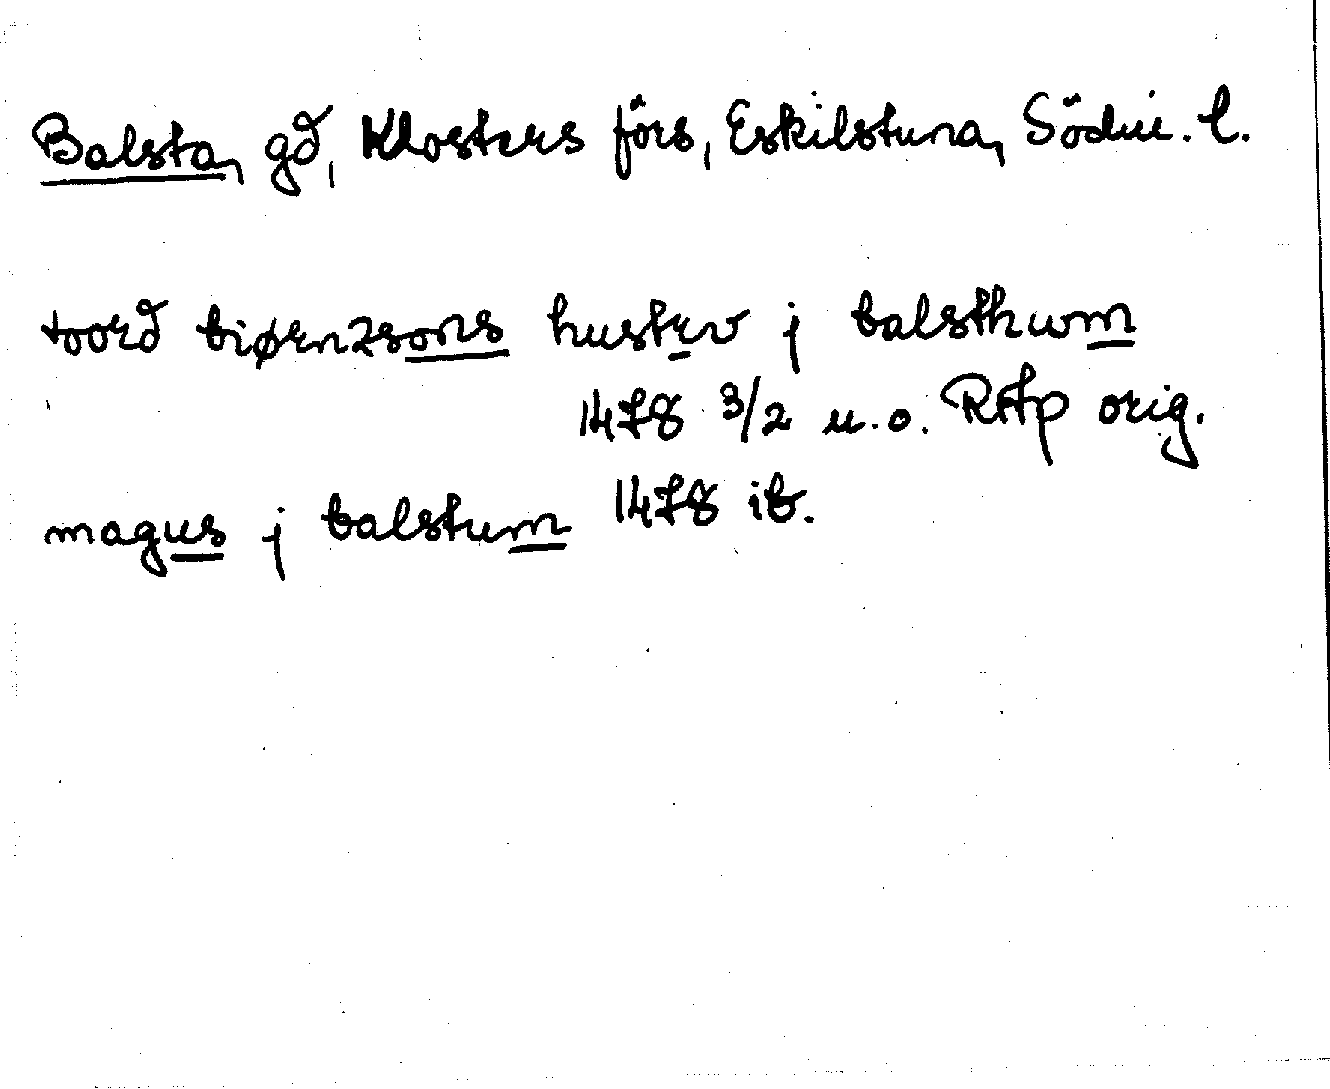 Balsta, gd, Klosters förs, Eskilstuna, Södm. l.
toord biørn2sons hustrv j balsthum
1478 3/2 u.o. RAp orig.
magus j balstum 1478 ib.